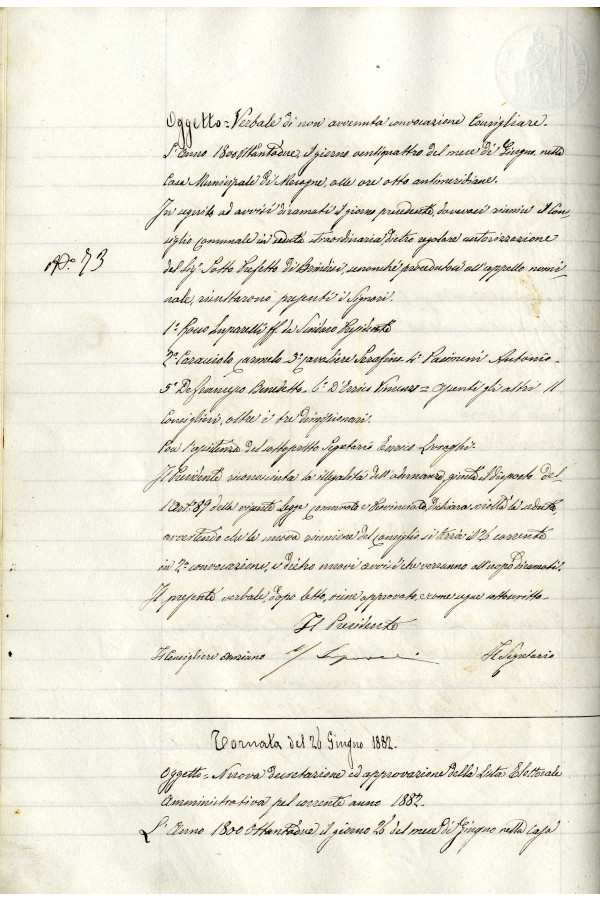 Oggetto = Verbale di non avvenuta convocazione Consigliare.
L'Anno 1800ottantadue, il giorno ventiquattro del mese di Giugno, nella
Casa Municipale di Mesagne, alle ore otto antimeridiane.
In seguito ad avvisi diramati il giorno precedente, dovevasi riunire il Con-
siglio Comunale in seduta straordinaria dietro regolare autorizzazione
N.º 73
del Sig.r Sotto Prefetto di Brindisi, senonché procedutosi all'appello nomi-
nale, risultarono presenti i Signori.
1º Luparelli ff. da Sindaco Presidente
2º Caraciolo Carmelo 3º Cavaliere Serafino 4º Pasimeni Antonio
5º Defrancesco Benedetto - 6º D'Errico Vincenzo = Assenti gli altri 11
Consiglieri, oltre i tre dimissionari.
Con l'assistenza del sottoscritto Segretario Enrico
Il Presidente riconosciuta la illegalità dell'adunanza, giusta il disposto del-
l'Art.º 89 della vigente Legge Comunale e Provinciale, dichiara sciolta la seduta,
avvertendo che la nuova riunione del Consiglio si terrà il 26 corrente
in 2ª convocazione, e dietro nuovi avvisi che verranno all'uopo diramati.
Il presente verbale, dopo letto, viene approvato, e come segue sottoscritto.
Il Presidente
Il Consigliere Anziano
Il Segretario
Tornata del 26 Giugno 1882.
Oggetto = Nuova decretazione ed approvazione della Lista Elettorale
Amministrativa pel corrente anno 1882.
L'Anno 1800 Ottantadue il giorno 26 del mese di Giugno nella Casa